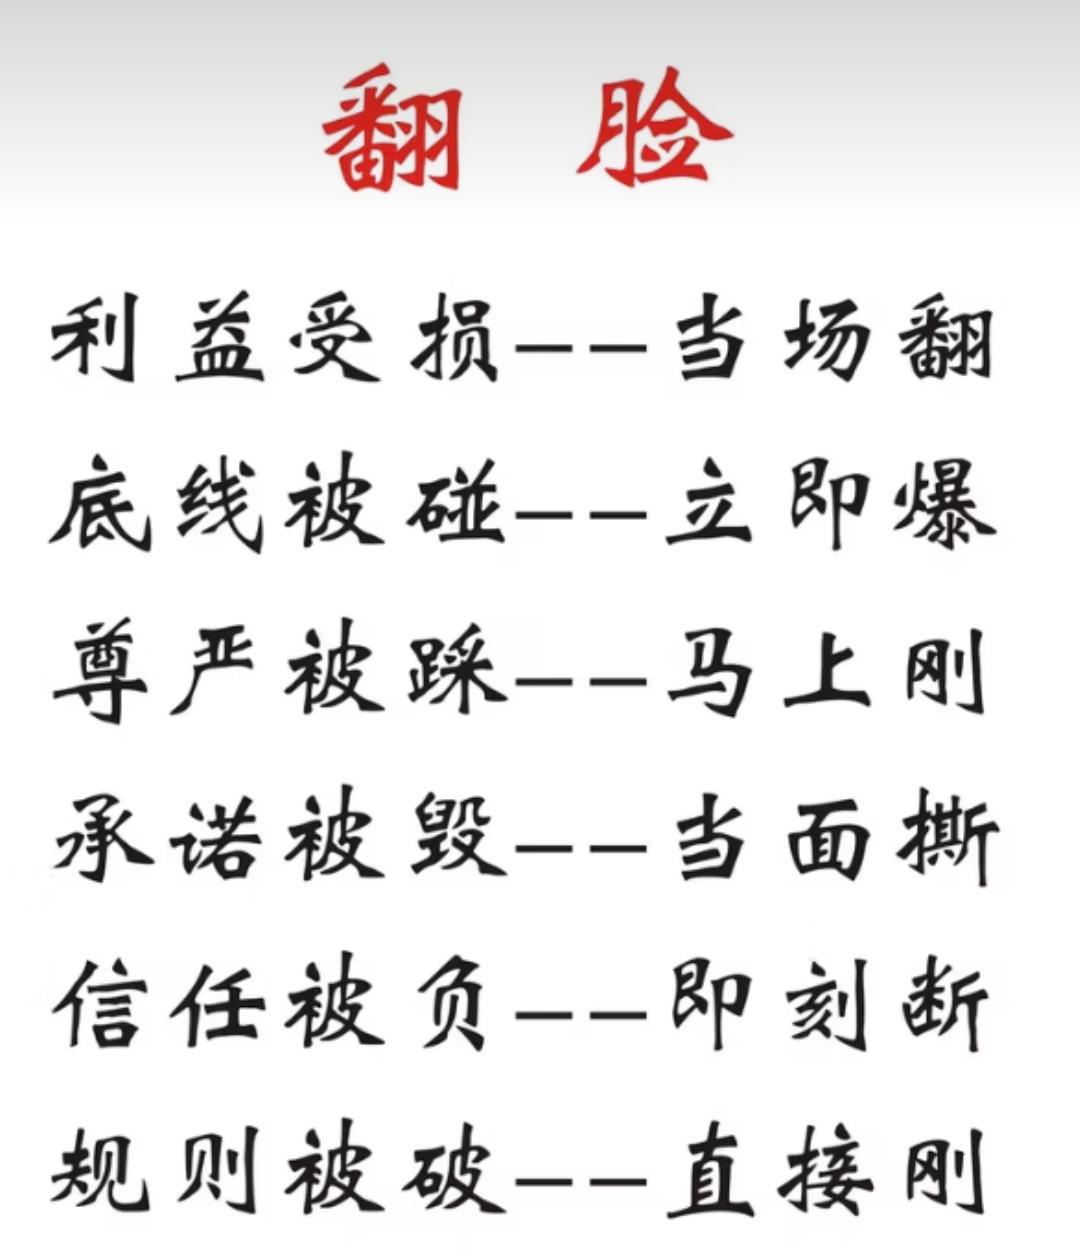 翻 脸
利益受损--当场翻
底线被碰--立即爆
尊严被踩--马上刚
承诺被毁--当面撕
信任被负--即刻断
规则被破--直接刚